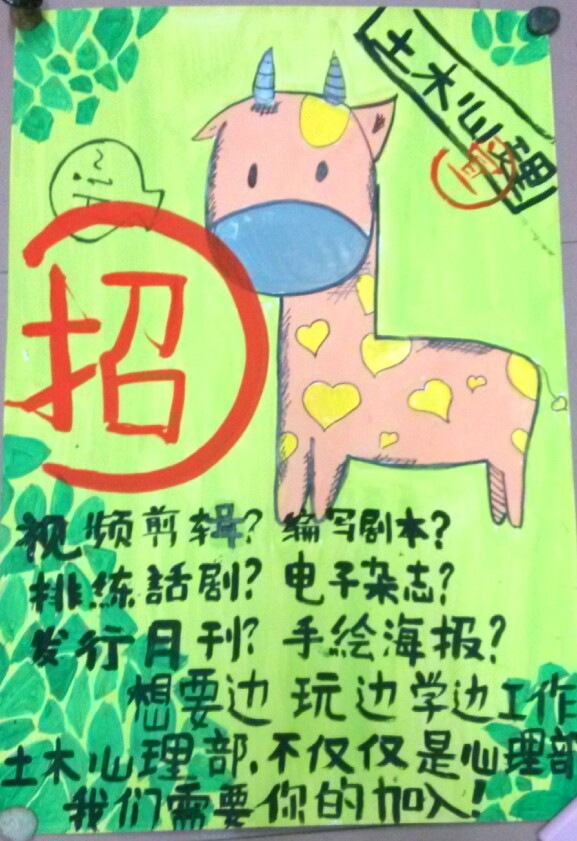 土木心理
招
视频剪辑? 编写剧本?
排练話剧? 电子杂志?
发行月刊? 手绘海报?
想要边玩边学边工作
土木心理部,不仅仅是心理部
我们需要你的加入!